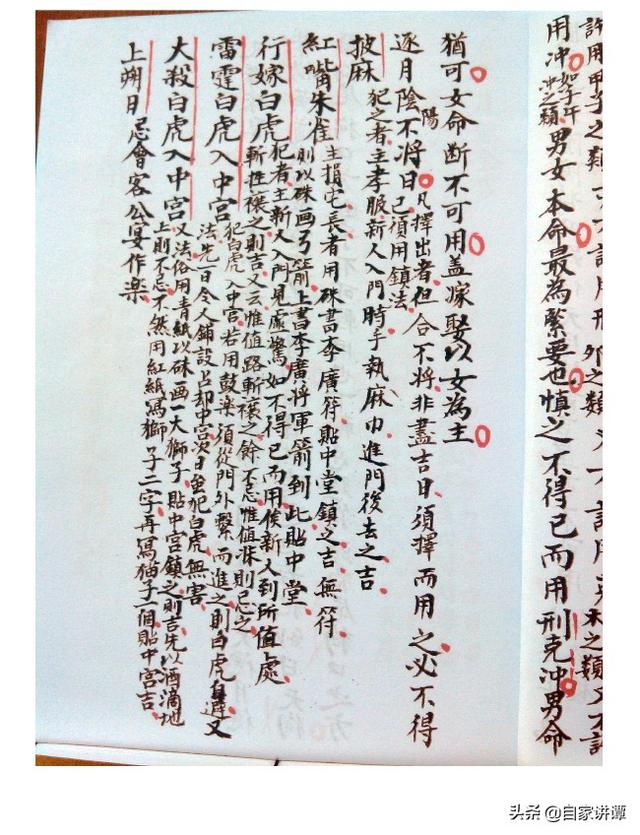 許用甲子之類
用冲如子午冲之類男女本命最為緊要也慎之不得已而用刑克冲男命
猶可女命断不可用盖嫁娶以女為主
逐月陰陽不将日凡擇出者但合不将非盡吉日須擇而用之必不得
已須用鎮法
披麻犯之者主孝服新人入門時手執麻巾進門後去之吉
紅嘴朱雀主損宅長者用硃書李廣符貼中堂鎮之吉無符
則以硃画弓箭上書李廣將軍箭到此貼中堂
行嫁白虎犯者主新人入門見虚驚如不得已而用俟新人到所值處
斬牲禳之則吉又云惟值路斬禳之餘不忌惟值床則忌之
雷霆白虎入中宫犯白虎入中宫若用鼓楽須從門外擊而進之則白虎自避又
法先日令人鋪設占却中宫次日至犯白虎無害
大殺白虎入中宫又法俗用青紙以硃画一大獅子貼中宫鎮之則吉先以酒滴地
上則不忌不然用紅紙寫獅子二字再寫猫子一個貼中宫吉
上朔日忌會客公宴作楽
头条 @自家讲谭